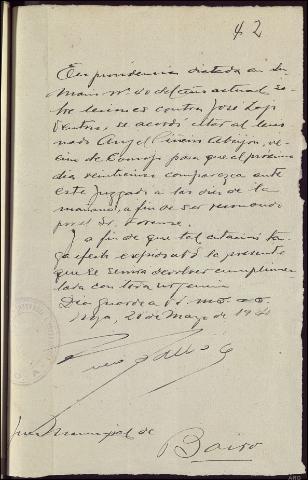 42
En providencia dictada en su-
mario nº 40 del año actual so-
bre lesiones contra José
Ventura, se acordó citar al lesio-
nado Angel Abeijon, ve-
cino de para que el próximo
día veinticinco comparezca ante
este Juzgado a las diez de la
mañana, a fin de ser reconocido
por el Sr. Forense.
Y a fin de que tal citacion ten-
ga efecto expido a V. la presente
que se servirá devolver cumplimen-
tada con toda urgencia.
Dios guarde a V. m. a.
Noya, 21 de Mayo de 19
Juez Municipal de
Boiro